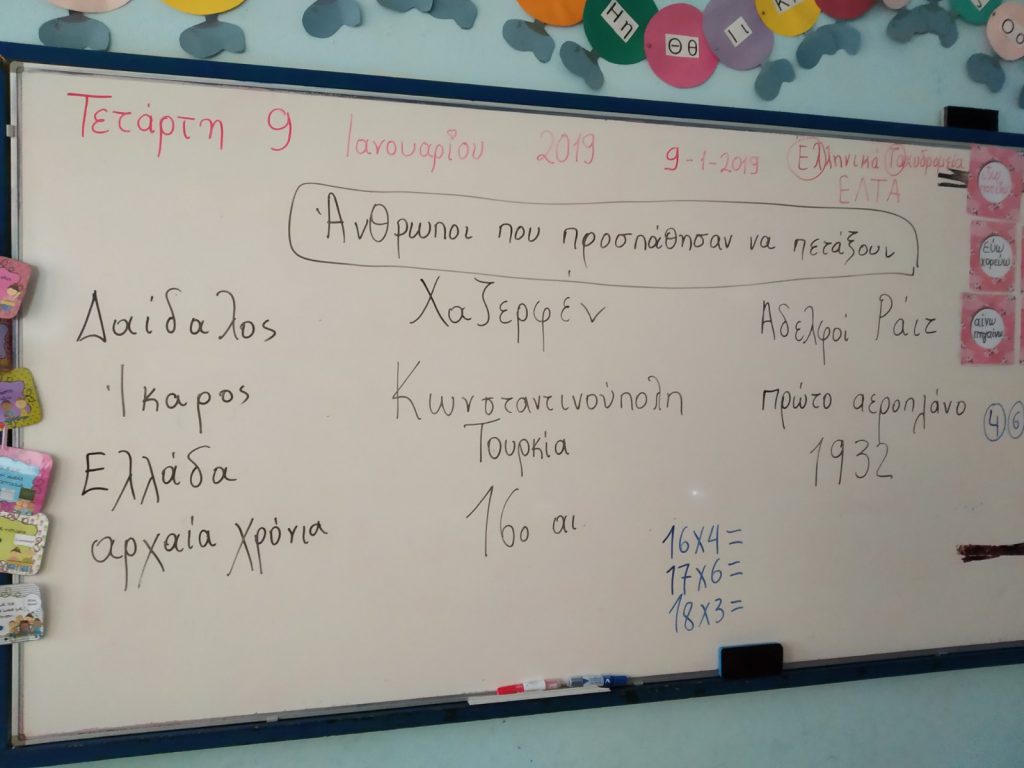 Ηη
Θθ
Ιι
Οο
Τετάρτη 9 Ιανουαρίου 2019 9-1-2019 Ελληνικά Ταχυδρομεία
ΕΛΤΑ
Άνθρωποι που προσπάθησαν να πετάξουν
Δαίδαλος
Ίκαρος
Ελλάδα
αρχαία χρόνια
Χαζερφέν
Κωνσταντινούπολη
Τουρκία
16ο αι.
Αδελφοί Ράιτ
πρώτο αεροπλάνο
1932
16x4=
17x6=
18x3=
εύω
χορεύω
αίνω
πηγαίνω
4 6